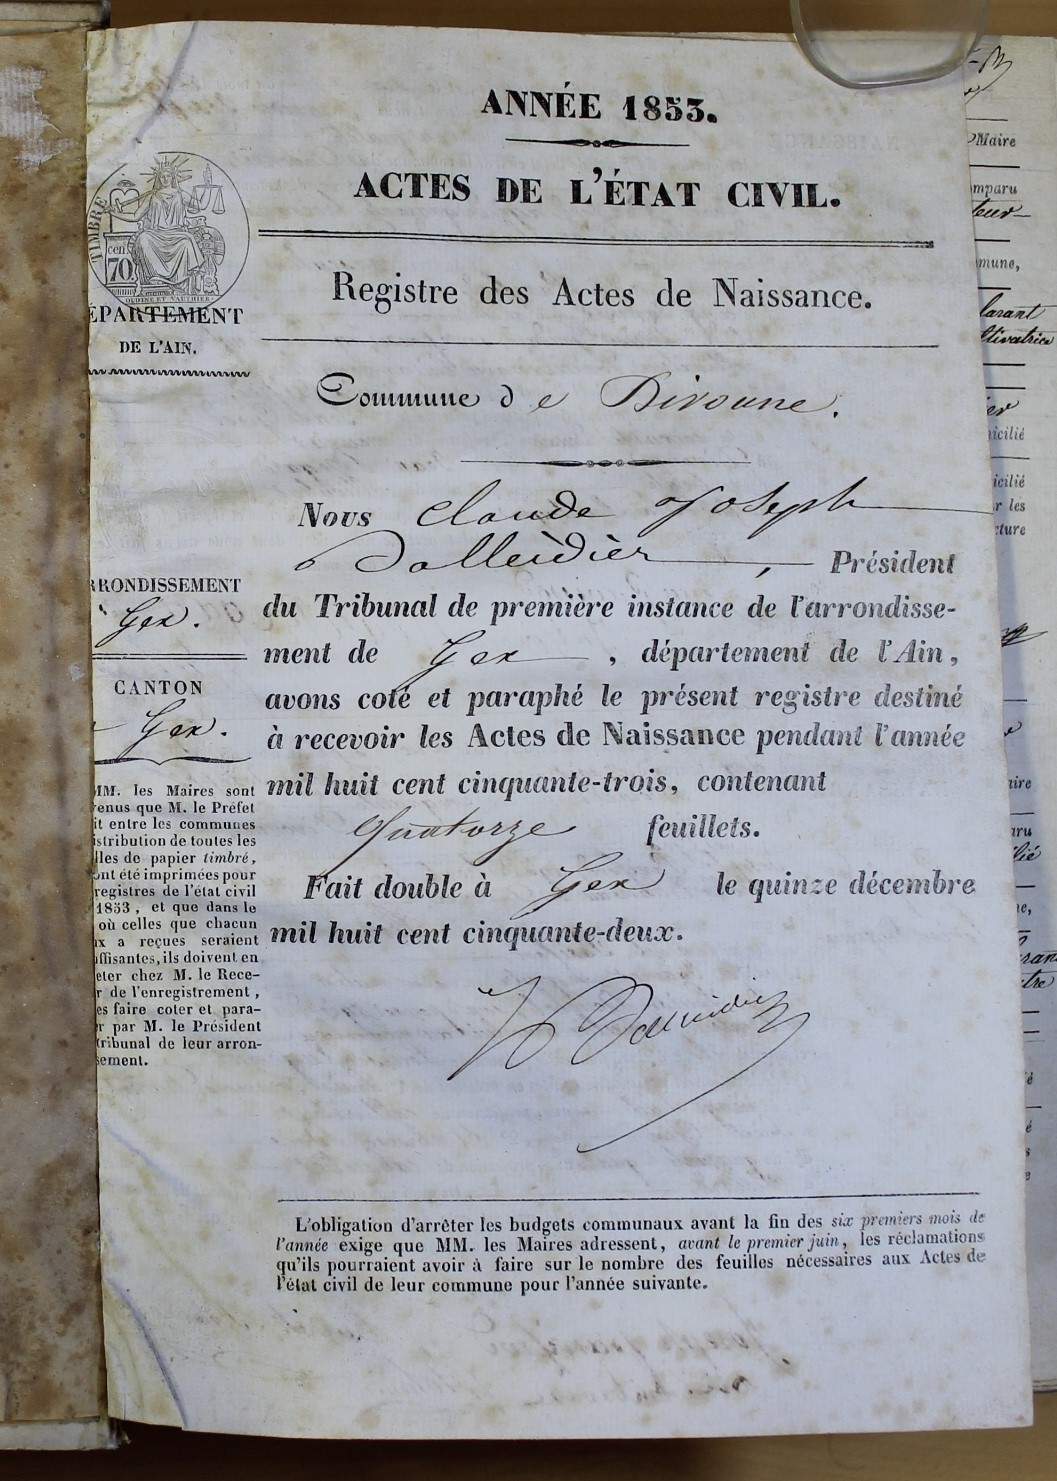 ANNÉE 1853.
ACTES DE L'ÉTAT CIVIL.
TIMBRE
cen.
70
OUDINE ET VAUTHIER
ÉPARTEMENT
DE L'AIN.
Registre des Actes de Naissance.
Commune de Divonne.
RRONDISSEMENT
Gex.
CANTON
Gex.
MM. les Maires sont
enus que M. le Préfet
it entre les communes
istribution de toutes les
lles de papier timbré,
ont été imprimées pour
registres de l'état civil
1853, et que dans le
où celles que chacun
x a reçues seraient
ffisantes, ils doivent en
eter chez M. le Rece-
r de l'enregistrement,
es faire coter et para-
r par M. le Président
tribunal de leur arron-
sement.
Nous Claude Joseph
Dalleidier, Président
du Tribunal de première instance de l'arrondisse-
ment de Gex, département de l'Ain,
avons coté et paraphé le présent registre destiné
à recevoir les Actes de Naissance pendant l'année
mil huit cent cinquante-trois, contenant
Quatorze feuillets.
Fait double à Gex le quinze décembre
mil huit cent cinquante-deux.
L'obligation d'arrêter les budgets communaux avant la fin des six premiers mois de
l'année exige que MM. les Maires adressent, avant le premier juin, les réclamations
qu'ils pourraient avoir à faire sur le nombre des feuilles nécessaires aux Actes de
l'état civil de leur commune pour l'année suivante.
Maire
mparu
teur
mune,
larant
ltivatrice
icilié
icilié
r les
cture
aire
aru
ilié
ne,
larant